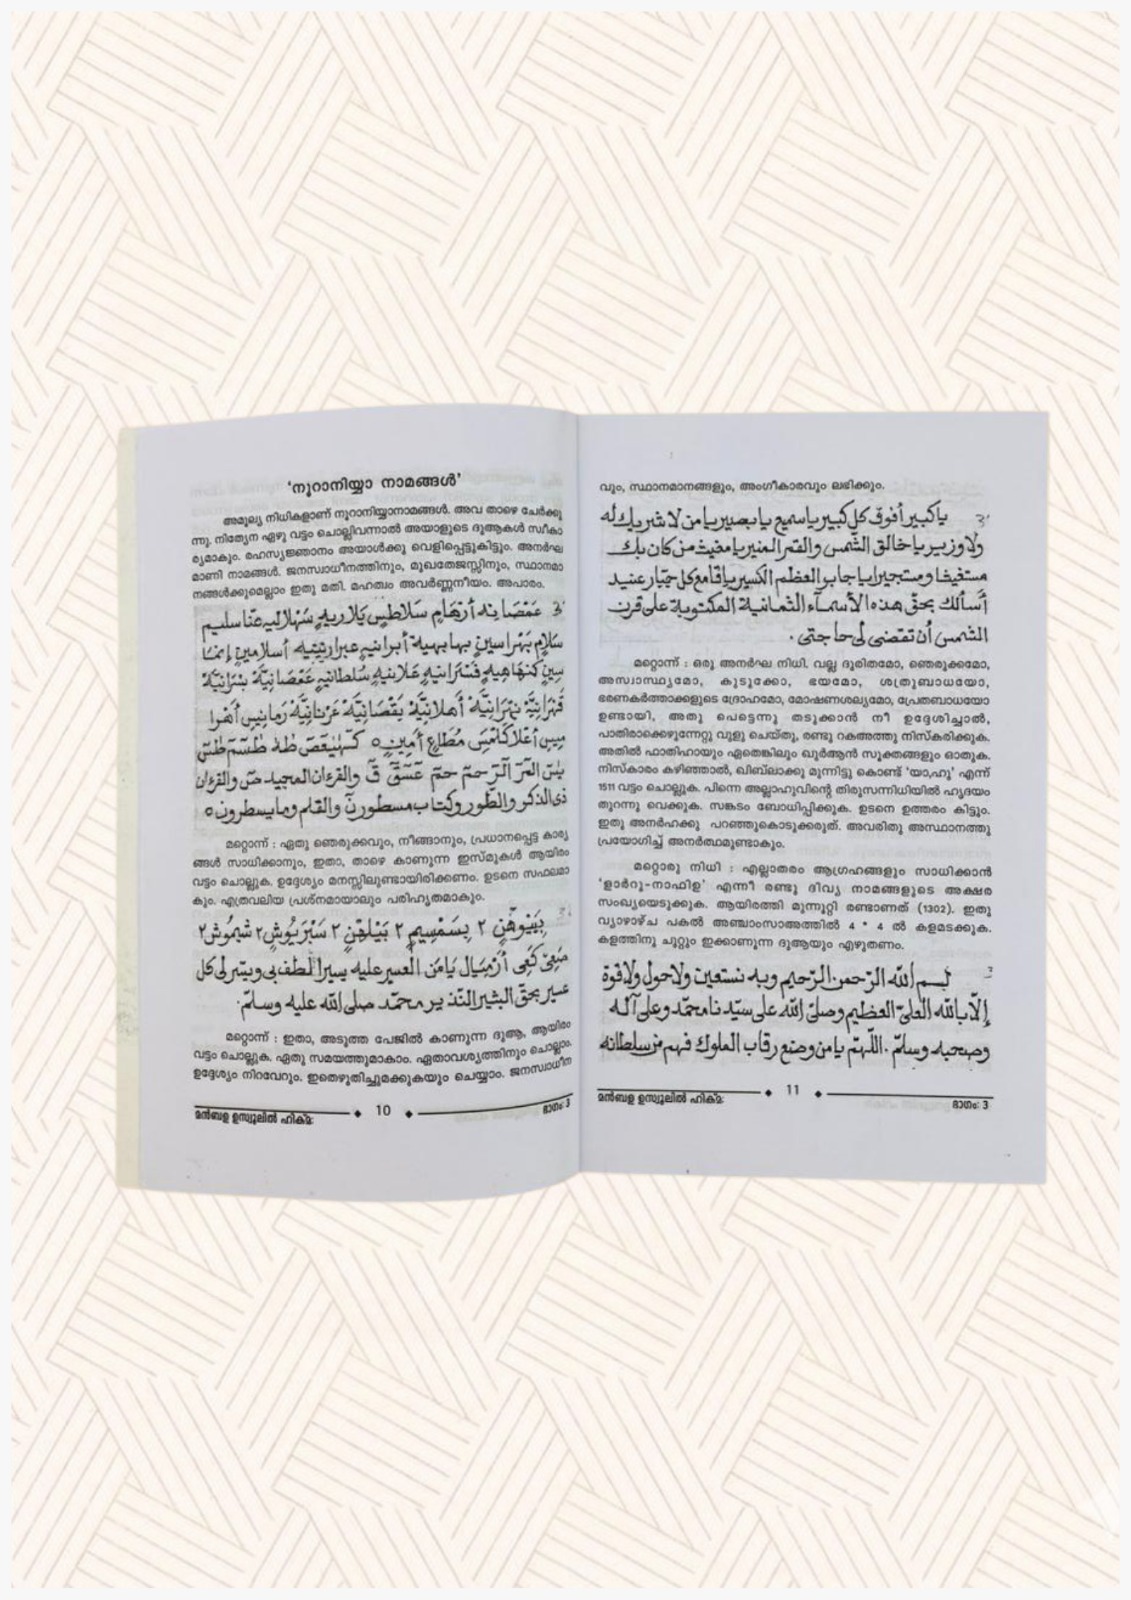 'നൂറാനിയ്യാ നാമങ്ങൾ'
അമൂല്യ നിധികളാണ് നൂറാനിയ്യാനാമങ്ങൾ. അവ താഴെ ചേർക്കു
ന്നു. നിത്യേന ഏഴു വട്ടം ചൊല്ലിവന്നാൽ അയാളുടെ ദുആകൾ സ്വീകാ
ര്യമാകും. രഹസ്യജ്ഞാനം അയാൾക്കു വെളിപ്പെട്ടുകിട്ടും. അനർഘ
മാണി നാമങ്ങൾ. ജനസ്വാധീനത്തിനും, മുഖതേജസ്സിനും, സ്ഥാനമാ
നങ്ങൾക്കുമെല്ലാം ഇതു മതി. മഹത്വം അവർണ്ണനീയം. അപാരം.
سلام
سلطانيه
مطاع أمين كهيعص طه طسم طس
يس المر الر حم حم عسق ق والقرءان المجيد ص والقرءان
ذى الذكر والطور وكتاب مسطور ن والقلم وما يسطرون
മറ്റൊന്ന് : ഏതു ഞെരുക്കവും, നീങ്ങാനും, പ്രധാനപ്പെട്ട കാര്യ
ങ്ങൾ സാധിക്കാനും, ഇതാ, താഴെ കാണുന്ന ഇസ്മുകൾ ആയിരം
വട്ടം ചൊല്ലുക. ഉദ്ദേശ്യം മനസ്സിലുണ്ടായിരിക്കണം. ഉടനെ സഫലമാ
കും. എത്രവലിയ പ്രശ്നമായാലും പരിഹൃതമാകും.
العسير عليه يسير الطف بى ويسر لى كل
عسير بحق البشير النذير محمد صلى الله عليه وسلم.
മറ്റൊന്ന് : ഇതാ, അടുത്ത പേജിൽ കാണുന്ന ദുആ, ആയിരം
വട്ടം ചൊല്ലുക. ഏതു സമയത്തുമാകാം. ഏതാവശ്യത്തിനും ചൊല്ലാം.
ഉദ്ദേശ്യം നിറവേറും. ഇതെഴുതിച്ചുമക്കുകയും ചെയ്യാം. ജനസ്വാധീന
മൻബഉ ഉസ്വൂലിൽ ഹിക്മ: 10 ഭാഗം: 3
വും, സ്ഥാനമാനങ്ങളും, അംഗീകാരവും ലഭിക്കും.
يا كبير أفوق كل كبير يا سميع يا بصير يا من لا شريك له
ولا وزير يا خالق الشمس والقمر المنير يا مغيث من كان بك
مستغيثا ومستجيرا يا جابر العظم الكسير يا قامع كل جبار عنيد
أسألك بحق هذه الأسماء الثمانية المكتوبة على قرن
الشمس أن تقضى لى حاجتى.
മറ്റൊന്ന് : ഒരു അനർഘ നിധി. വല്ല ദുരിതമോ, ഞെരുക്കമോ,
അസ്വാസ്ഥ്യമോ, കുടുക്കോ, ഭയമോ, ശത്രുബാധയോ,
ഭരണകർത്താക്കളുടെ ദ്രോഹമോ, മോഷണശല്യമോ, പ്രേതബാധയോ
ഉണ്ടായി, അതു പെട്ടെന്നു തടുക്കാൻ നീ ഉദ്ദേശിച്ചാൽ,
പാതിരാക്കെഴുന്നേറ്റു വുളു ചെയ്തു, രണ്ടു റകഅത്തു നിസ്കരിക്കുക.
അതിൽ ഫാതിഹായും ഏതെങ്കിലും ഖുർആൻ സൂക്തങ്ങളും ഓതുക.
നിസ്കാരം കഴിഞ്ഞാൽ, ഖിബ്‌ലാക്കു മുന്നിട്ടു കൊണ്ട് 'യാ,ഹൂ' എന്ന്
1511 വട്ടം ചൊല്ലുക. പിന്നെ അല്ലാഹുവിന്റെ തിരുസന്നിധിയിൽ ഹൃദയം
തുറന്നു വെക്കുക. സങ്കടം ബോധിപ്പിക്കുക. ഉടനെ ഉത്തരം കിട്ടും.
ഇതു അനർഹക്കു പറഞ്ഞുകൊടുക്കരുത്. അവരിതു അസ്ഥാനത്തു
പ്രയോഗിച്ച് അനർത്ഥമുണ്ടാകും.
മറ്റൊരു നിധി : എല്ലാതരം ആഗ്രഹങ്ങളും സാധിക്കാൻ
'ളാർറു-നാഫിഉ' എന്നീ രണ്ടു ദിവ്യ നാമങ്ങളുടെ അക്ഷര
സംഖ്യയെടുക്കുക. ആയിരത്തി മുന്നൂറ്റി രണ്ടാണത് (1302). ഇതു
വ്യാഴാഴ്ച പകൽ അഞ്ചാംസാഅത്തിൽ 4 * 4 ൽ കളമടക്കുക.
കളത്തിനു ചുറ്റും ഇക്കാണുന്ന ദുആയും എഴുതണം.
بسم الله الرحمن الرحيم وبه نستعين ولا حول ولا قوة
إلا بالله العلي العظيم وصلى الله على سيدنا محمد وعلى آله
وصحبه وسلم. اللهم يا من وضع رقاب الملوك فهم من سلطانه
മൻബഉ ഉസ്വൂലിൽ ഹിക്മ: 11 ഭാഗം: 3